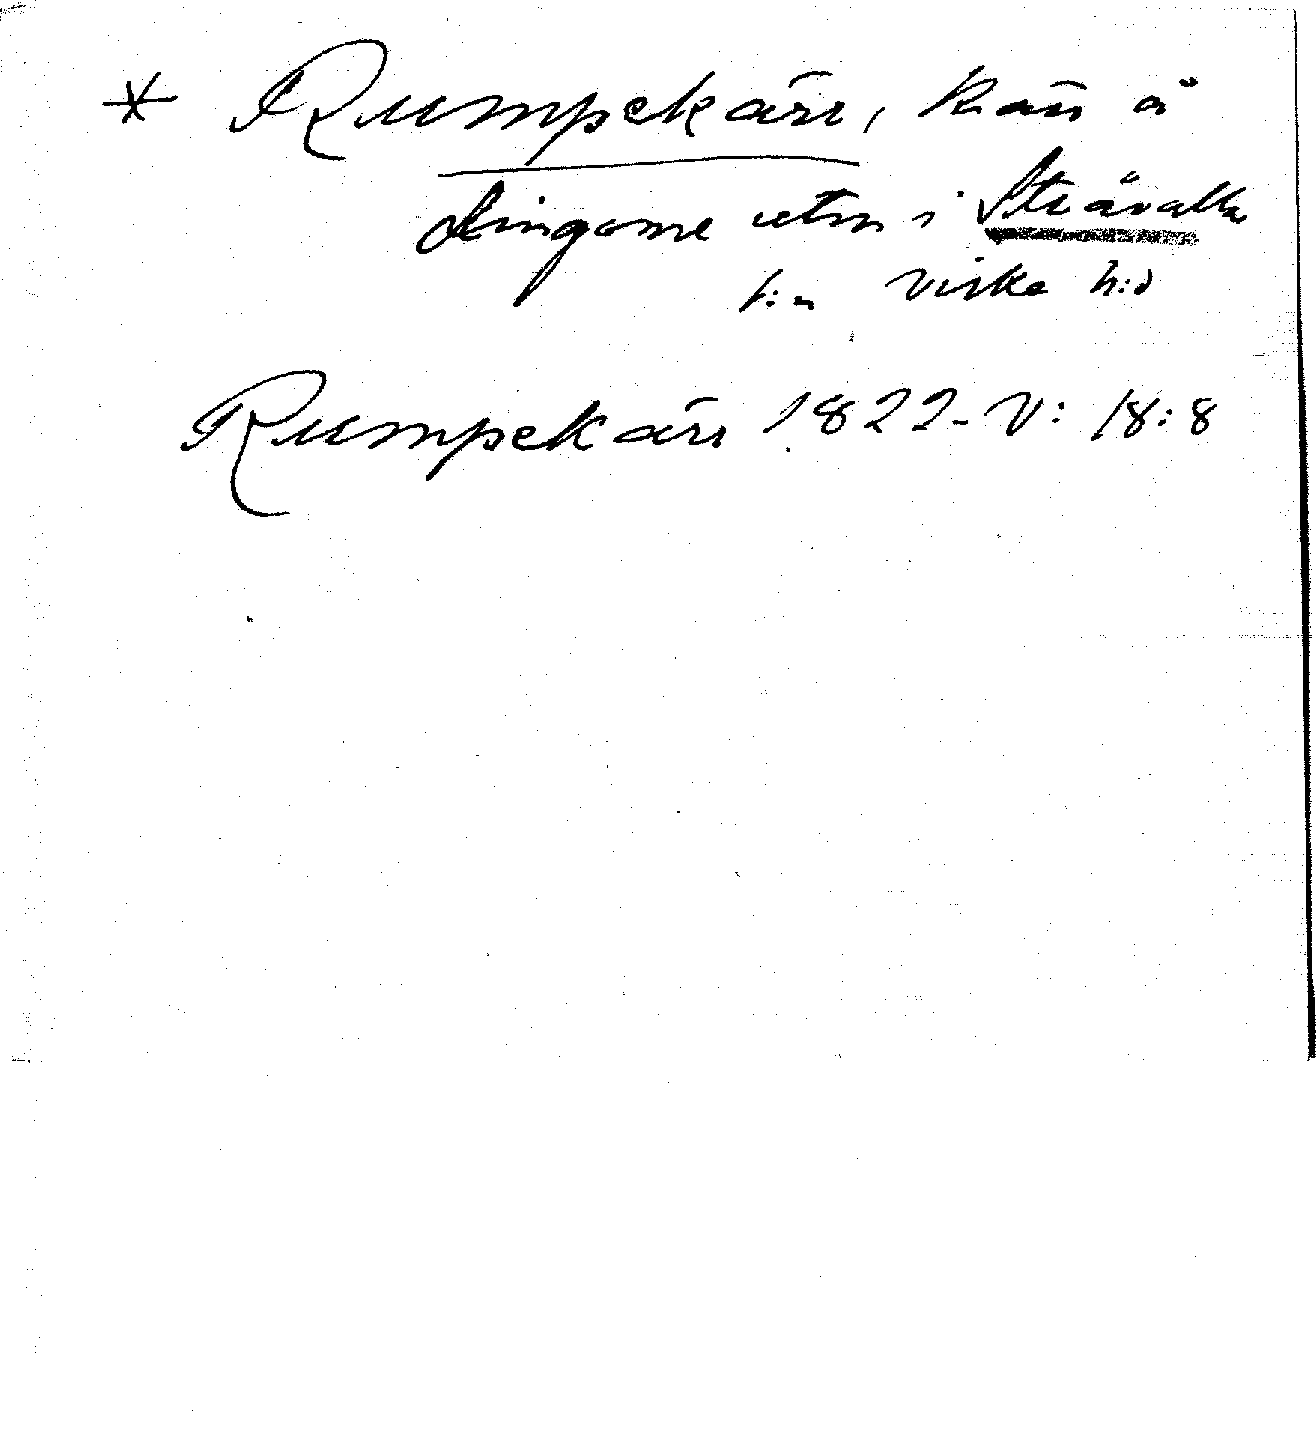 * Rumpekärr, kärr å
Lingome utm i Stråvalla
s:n Viske h:d
Rumpekärr 1822 - V: 18:8